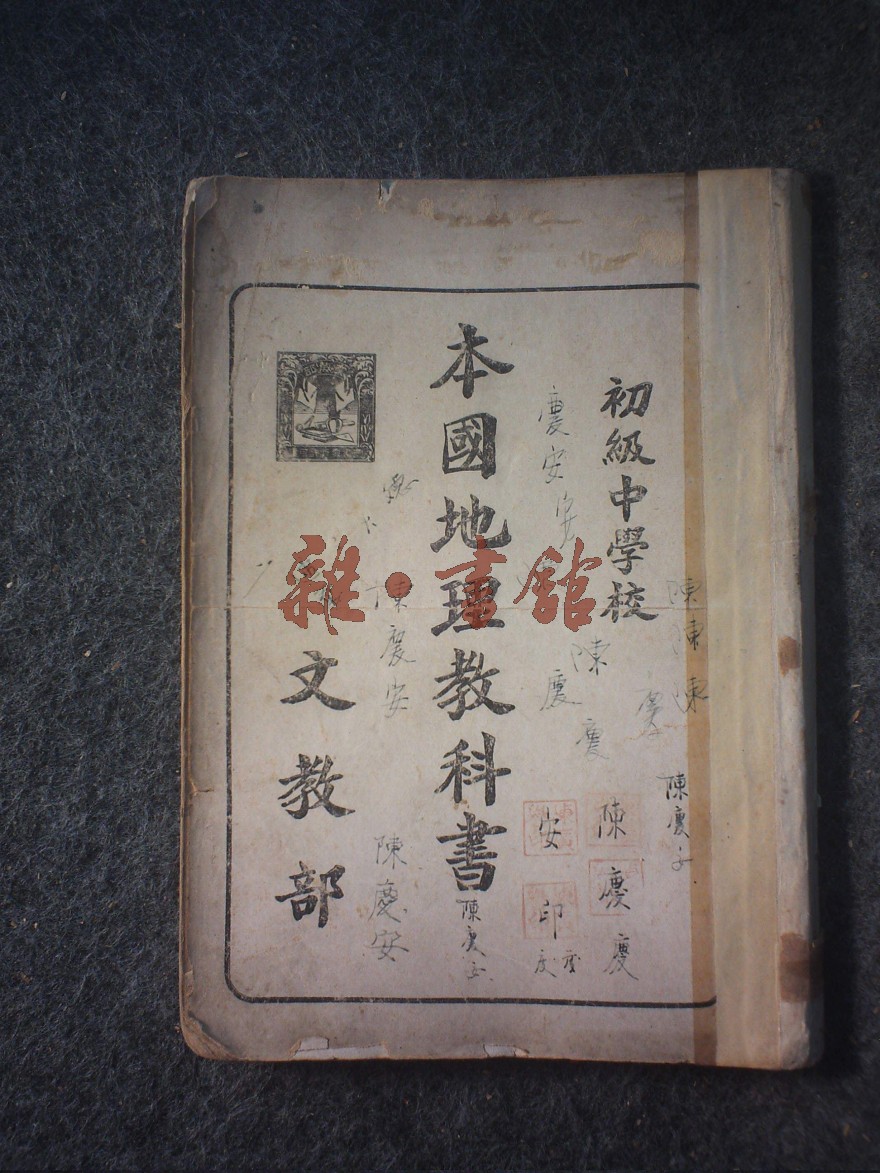 初級中學校
本國地理教科書
文教部
雜·書館
慶安安
陳慶
陳陳
陳
慶
陳慶
陳慶慶
安印
陳慶安
陳慶安
陳慶安